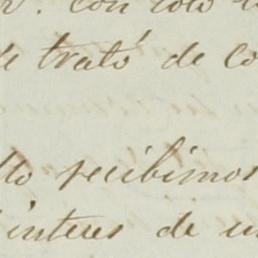 con
e trató de co
llo recibimos
interes de un